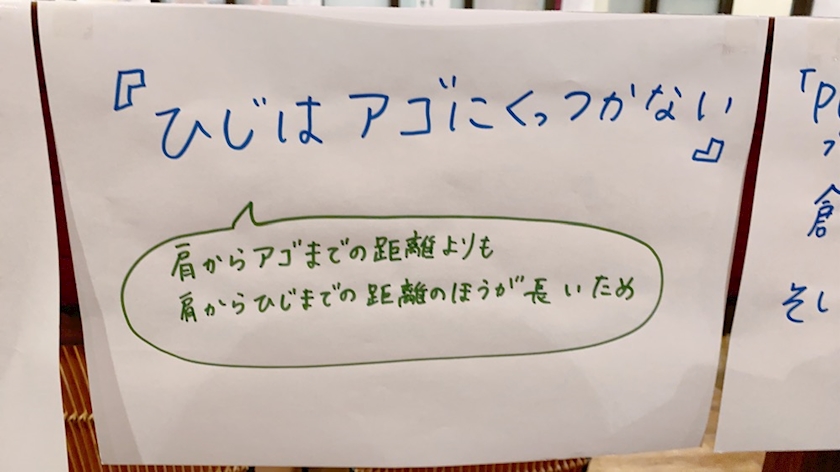 『ひじは アゴにくっつかない
』
肩からアゴまでの距離よりも
肩からひじまでの距離のほうが長いため
「P
倉
そし